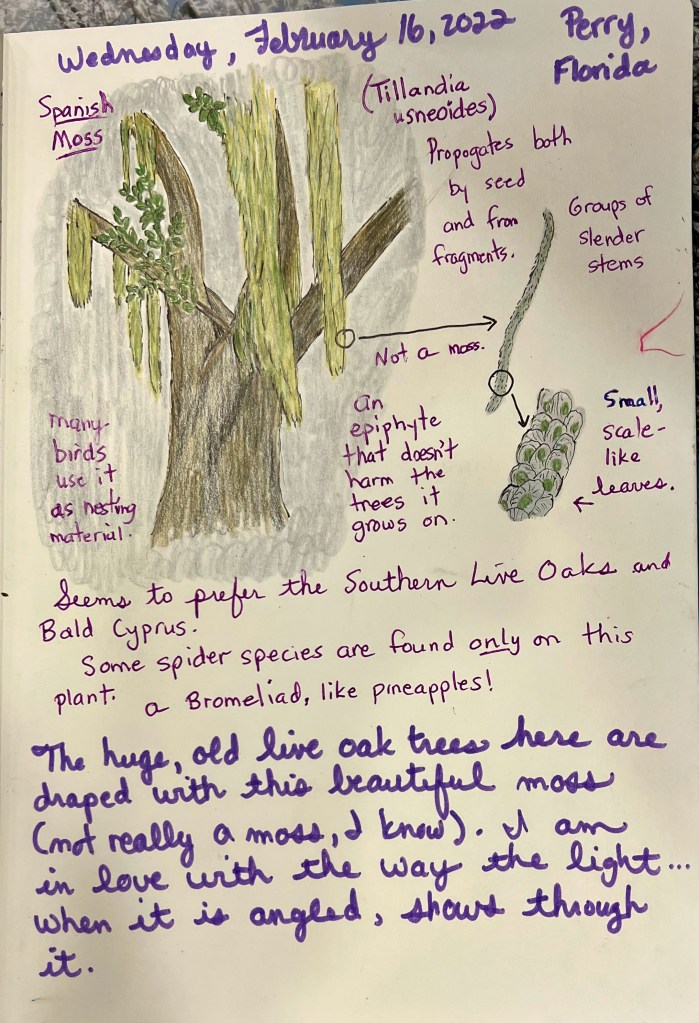 Wednesday, February 16, 2022
Perry,
Florida
Spanish
Moss
(Tillandia
usneoides)
Propogates both
by seed
and from
fragments.
Groups of
slender
stems
Not a moss.
an
epiphyte
that doesn't
harm the
trees it
grows on.
Small,
scale-
like
leaves.
many
birds
use it
as nesting
material.
Seems to prefer the Southern Live Oaks and
Bald Cyprus.
Some spider species are found only on this
plant. a Bromeliad, like pineapples!
The huge, old live oak trees here are
draped with this beautiful moss
(not really a moss, I know). I am
in love with the way the light...
when it is angled, shows through
it.